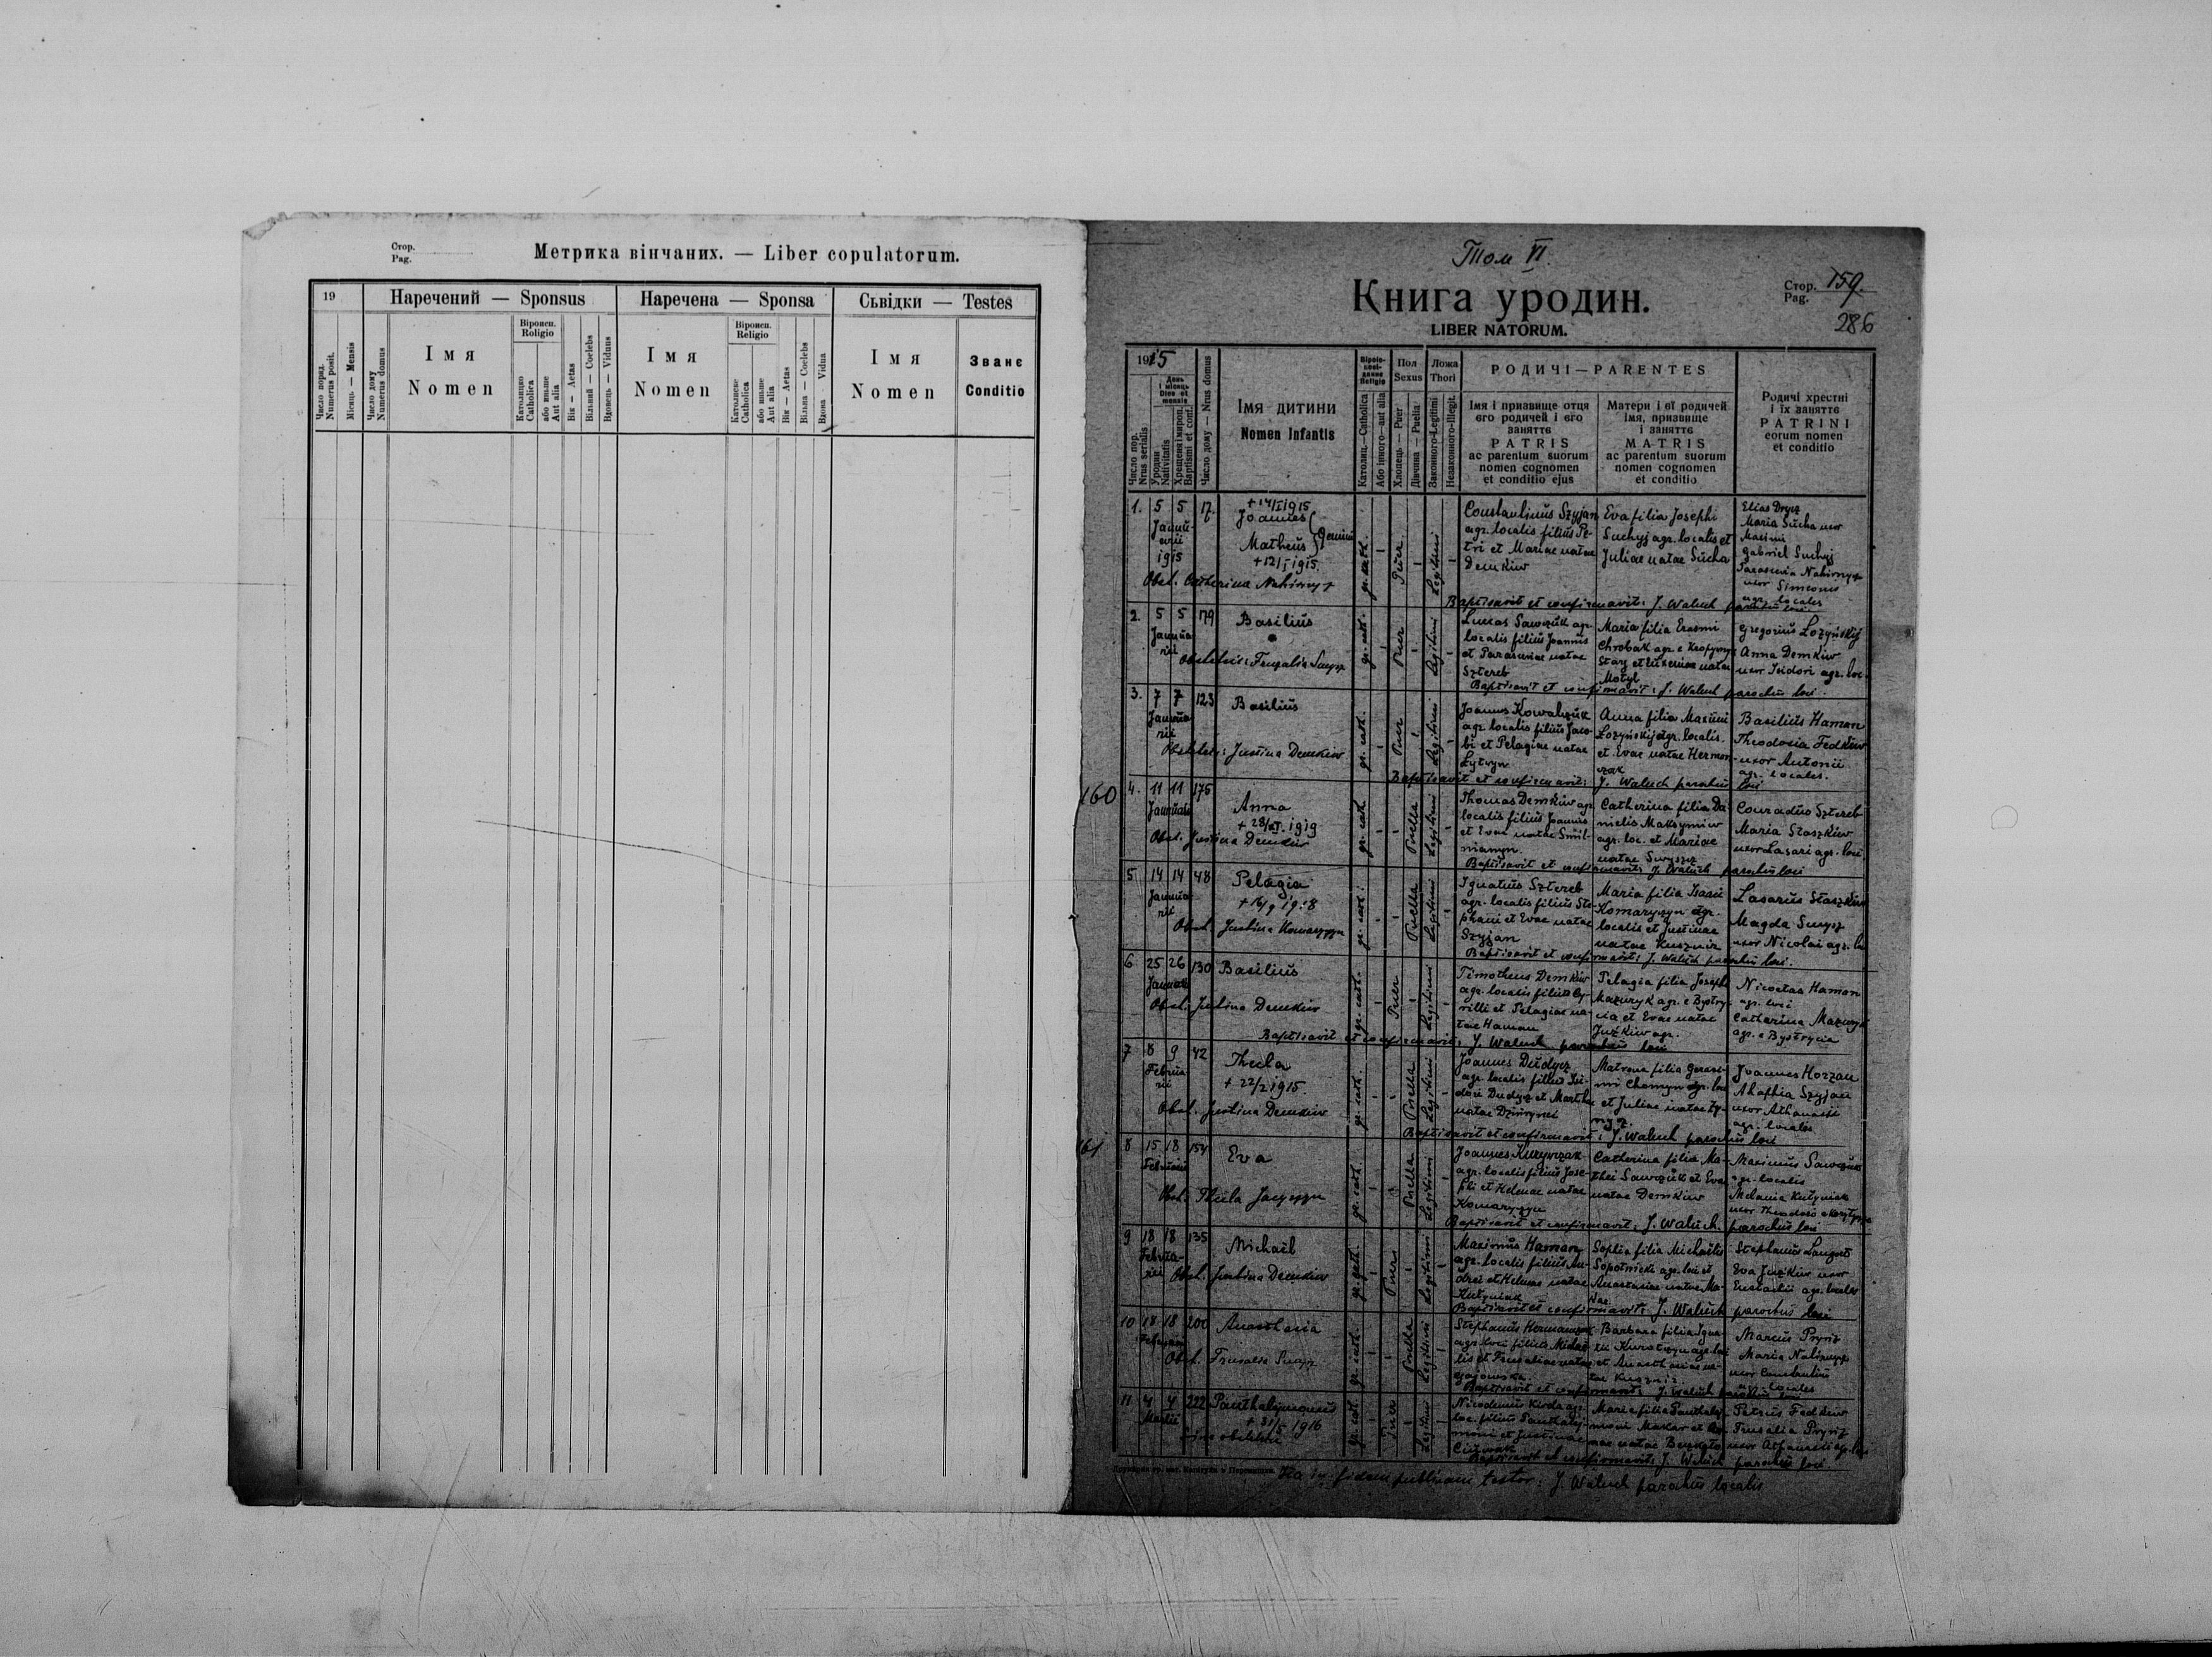 Стор.
Pag.
Метрика вінчаних. — Liber copulatorum.
19
Наречений — Sponsus
Наречена — Sponsa
Сьвідки — Testes
Число поряд.
Numerus posit.
Місяць — Mensis
Число дому
Numerus domus
Імя
Nomen
Віроисп.
Religio
Католицко
Catholica
або иньше
Aut alia
Вік — Aetas
Вільний — Coelebs
Вдовець — Viduus
Імя
Nomen
Віроисп.
Religio
Католиске
Catholica
або иньше
Aut alia
Вік — Aetas
Вільна — Coelebs
Вдова — Vidua
Імя
Nomen
Званє
Conditio
Том VI.
Книга уродин.
LIBER NATORUM.
Стор. 159.
Pag.
286
1915
Число пор.
Nrus serialis
День і місяць
Dies et mensis
Уродин
Nativitatis
Хрещеня і мироп.
Baptismi et conf.
Число дому — Nrus domus
Імя дитини
Nomen Infantis
Віроісповіданне
Religio
Католиц.—Catholica
Або інного—aut alia
Пол
Sexus
Хлопець — Puer
Дівчина — Puella
Ложа
Thori
Законного-Legitimi
Незаконного-Illegit.
РОДИЧІ — PARENTES
Імя і призвище отця
єго родичей і єго
заняттє
PATRIS
ac parentum suorum
nomen cognomen
et conditio ejus
Матери і єї родичей
імя, призвище
і занятте
MATRIS
ac parentum suorum
nomen cognomen
et conditio
Родичі хрестні
і їх занятте
PATRINI
eorum nomen
et conditio
1. 5 5 17
Januarii
1915
+ 14/I 1915
Joannes
Matheus
Gemini
+ 12/I 1915.
Obst. Catherina Nahirnyj
gr. cath. Puer Legitimi
Constantinus Szyjan
agr. localis filius Pe-
tri et Mariae natae
Demkiw
Eva filia Josephi
Suchyj agr. localis et
Juliae natae Sucha
Elias Drycz
Maria Sucha uxor
Maximi
Gabriel Suchyj
Parascevia
uxor Simeonis
agr. locales
Baptisavit et confirmavit: J. Waluch parochus loci.
2. 5 5 179
Januarii
Basilius
gr. cath. Puer Legitimi
Lucas Sawczuk agr.
localis filius Joannis
et Parasceviae natae
Sztereb
Maria filia Erasmi
Chrobak agr. e
Stary et natae
Motyl
Gregorius Łozyńskij
Anna Demkiw
uxor Isidori agr. loc.
Baptisavit et confirmavit: J. Waluch parochus loci.
3. 7 7 123
Januarii
Basilius
Obstetrix: Justina Demkiw
gr. cath. Puer Legitimi
Joannes Kowalczuk
agr. localis filius Jaco-
bi et Pelagiae natae
Łytwyn
Anna filia Maximi
Łozyńskij agr. localis.
et Evae natae Herman-
czak
Basilius Haman
Theodosia Fedkiw
uxor Antonii
agr. locales.
Baptisavit et confirmavit: J. Waluch parochus loci
160
4. 11 11 175
Januarii
Anna
+ 28/ 1919
Obst. Justina Demkiw
gr. cath. Puella Legitimi
Thomas Demkiw agr.
localis filius Joannis
et Evae natae Smil-
nianyn.
Catherina filia Da-
nielis Maksymiw
agr. loc. et Mariae
natae
Conradus Sztereb
Maria Staszkiw
uxor Lasari agr. loci
Baptisavit et confirmavit: J. Waluch parochus loci
5 14 14 48
Januarii
Pelagia
+ 16/9 1918
Obst. Justina Komaryczyn
gr. cath. Puella Legitimi
Ignatius Sztereb
agr. localis filius Ste-
phani et Evae natae
Szyjan
Maria filia Isaaci
Komaryczyn agr.
localis et Justinae
natae Kusznir
Lasarus Staszkiw
Magda Smysz
uxor Nicolai agr. loc
Baptisavit et confirmavit: J. Waluch parochus loci.
6 25 26 130
Januarii
Basilius
Obst. Justina Demkiw
gr. cath. Puer Legitimi
Timotheus Demkiw
agr. localis filius Cy-
rilli et Pelagiae na-
tae Haman
Pelagia filia Josephi
Mazuryk agr. e Bystry-
cia et Evae natae
Juźkiw agr.
Nicetas Haman
agr. loci
Catherina Mazuryk
agr. e Bystrycia
Baptisavit et confirmavit: J. Waluch parochus loci
7 8 9 42
Februarii
Thecla
+ 22/2 1915.
Obst. Justina Demkiw
gr. cath. Puella Legitimi
Joannes Dudycz
agr. localis filius Isi-
dori Dudycz et Marthae
natae
Matrona filia Gerasi-
mi Chomyn agr. loci
et Juliae natae
Joannes Horzan
Ahaphia Szyjan
uxor Athanasii
agr. locales
Baptisavit et confirmavit: J. Waluch parochus loci
161
8 15 18 154
Februarii
Eva
Obst. Thecla
gr. cath. Puella Legitimi
Joannes
agr. localis filius Jose-
phi et Helenae natae
Komaryczyn
Catherina filia Ma-
thei Sawczuk et Evae
natae Demkiw
Maximus Sawczuk
agr. localis
Melania Kutyniak
uxor Theodosii
Baptisavit et confirmavit: J. Waluch parochus loci
9 18 18 135
Februarii
Michaël
Obst. Justina Demkiw
gr. cath. Puer Legitimi
Maximus Haman
agr. localis filius An-
drei et Helenae natae
Kutyniak
Sophia filia Michaëlis
Sopotnicki agr. loci et
Anastasiae natae
Stephanus
Eva Juźkiw uxor
Eustachii agr. locales
Baptisavit et confirmavit: J. Waluch parochus loci
10 18 18 200
Februarii
Anasthasia
gr. cath. Puella Legitimi
Stephanus Hermanczak
agr. loci filius Michaë-
lis et natae
Barbara filia Igna-
tii agr. loci
et Anasthasiae na-
tae Kusznir.
Marcus Pryriz
Maria
uxor Constantini
agr. locales
Baptisavit et confirmavit: J. Waluch parochus loci
11 4 4 222
Martii
Panthalymonus
+ 31/5 1916
sine obstetrice
gr. cath. Puer Legitimi
Nicodemus agr.
loc. filius Panthaly-
moni et Justinae
Maria filia Panthaly-
moni Maskar et
natae
Petrus Fedkiw
Pryriz
uxor Athanasii agr. loci
Baptisavit et confirmavit: J. Waluch parochus loci
Ita in fidem publicam testor: J. Waluch parochus localis